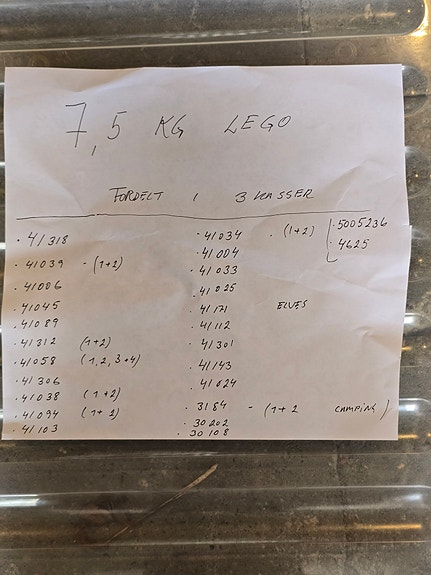 7,5 KG LEGO
FORDELT I 3 KASSER
· 41318
· 41039 - (1+2)
· 41006
· 41045
· 41089
· 41312 (1+2)
· 41058 (1,2,3+4)
· 41306
· 41038 (1+2)
· 41094 (1+2)
· 41103
· 41034 - (1+2)
· 41004
· 41033
· 41025
· 41171 ELVES
· 41112
· 41301
· 41143
· 41024
· 3184 - (1+2 CAMPING)
· 30202
· 30108
· 5005236
· 4625